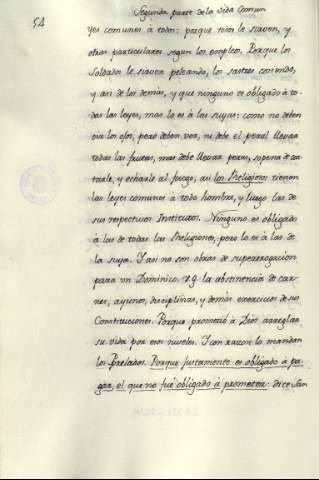 54
Segunda parte de la Vida Comun
yes comunes à todos: porque todos le sirven, y
otras particulares segun los empleos. Porque los
Soldados le sirven peleando, los sastres cosiendo,
y asi de los demàs, y que ninguno es obligado à to-
das las leyes, mas lo es à las suyas: como no deben
oir los ojos, pero deben ver, ni debe el peral llevar
todas las frutas, mas debe llevar peras, sopena de cor-
tarle, y echarle al fuego, asi las Religiones tienen
las leyes comunes à todo hombre, y luego las de
sus respectivos Institutos. Ninguno es obligado
à las de todas las Religiones, pero lo es à las de
la suya. Y asi no son obras de supererogacion
para un Dominico. v.g. la abstinencia de car-
nes, ayunos, disciplinas, y demàs exercicios de sus
Constituciones. Porque prometió à Dios arreglar
su vida por esos niveles. Y con razon lo mandan
los Prelados. Porque justamente es obligado à pa-
gar, el que no fuè obligado à prometer. dice San